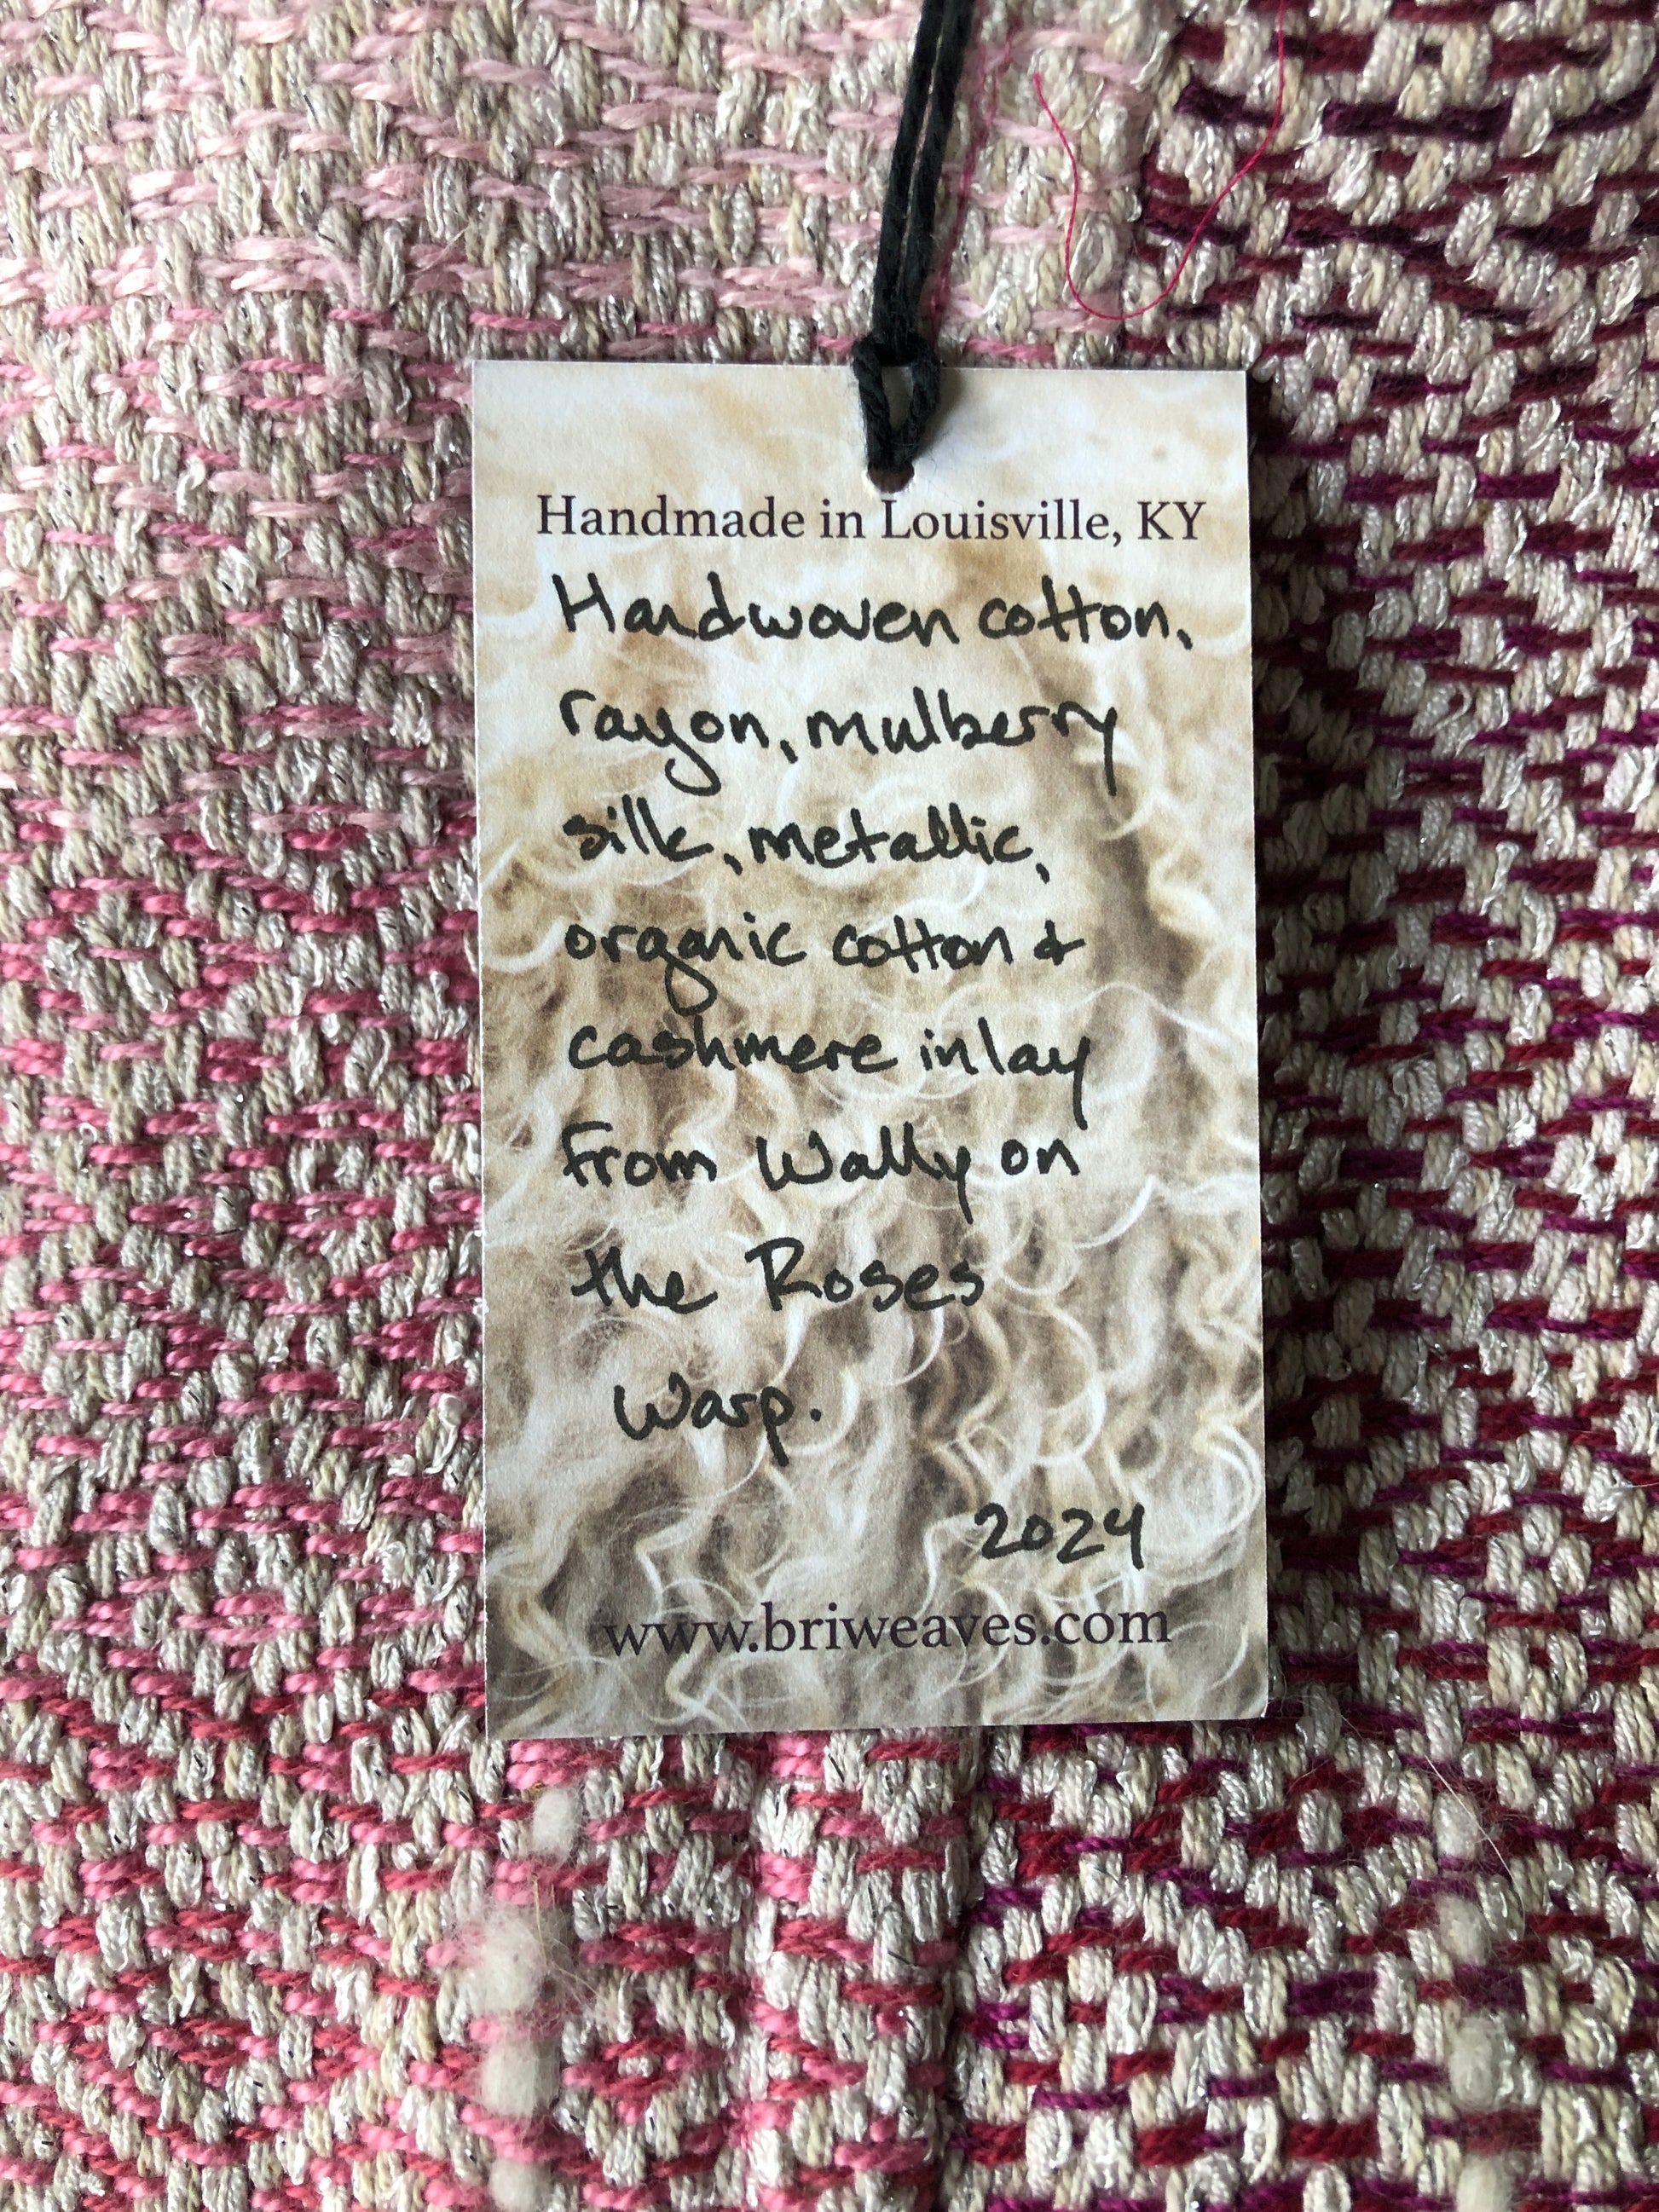 Handmade in Louisville, KY
Handwoven cotton,
rayon, mulberry
silk, metallic,
organic cotton &
cashmere inlay
from Wally on
the Roses
Warp.
2024
www.briweaves.com